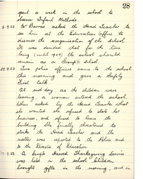 28
spent a week in the school to
observe Infant Methods.
Mr Barnes asked the Head Teacher to
see him at the Education Office to
discuss the organisation of the School.
It was decided that for the time
being the school should
remain as a through school.
The police officer came to the school
this morning and gave a
talk.
At mid day as the children were
leaving a woman entered the school.
When asked by the Head Teacher what
she wanted she refused to state her
business, and refused to leave the
building. She finally
the Head Teacher and the
matter was reported to the Police and
to the Director of Education.
A simple Harvest Thanksgiving Service
was held in the school. Children
brought gifts in the morning, and